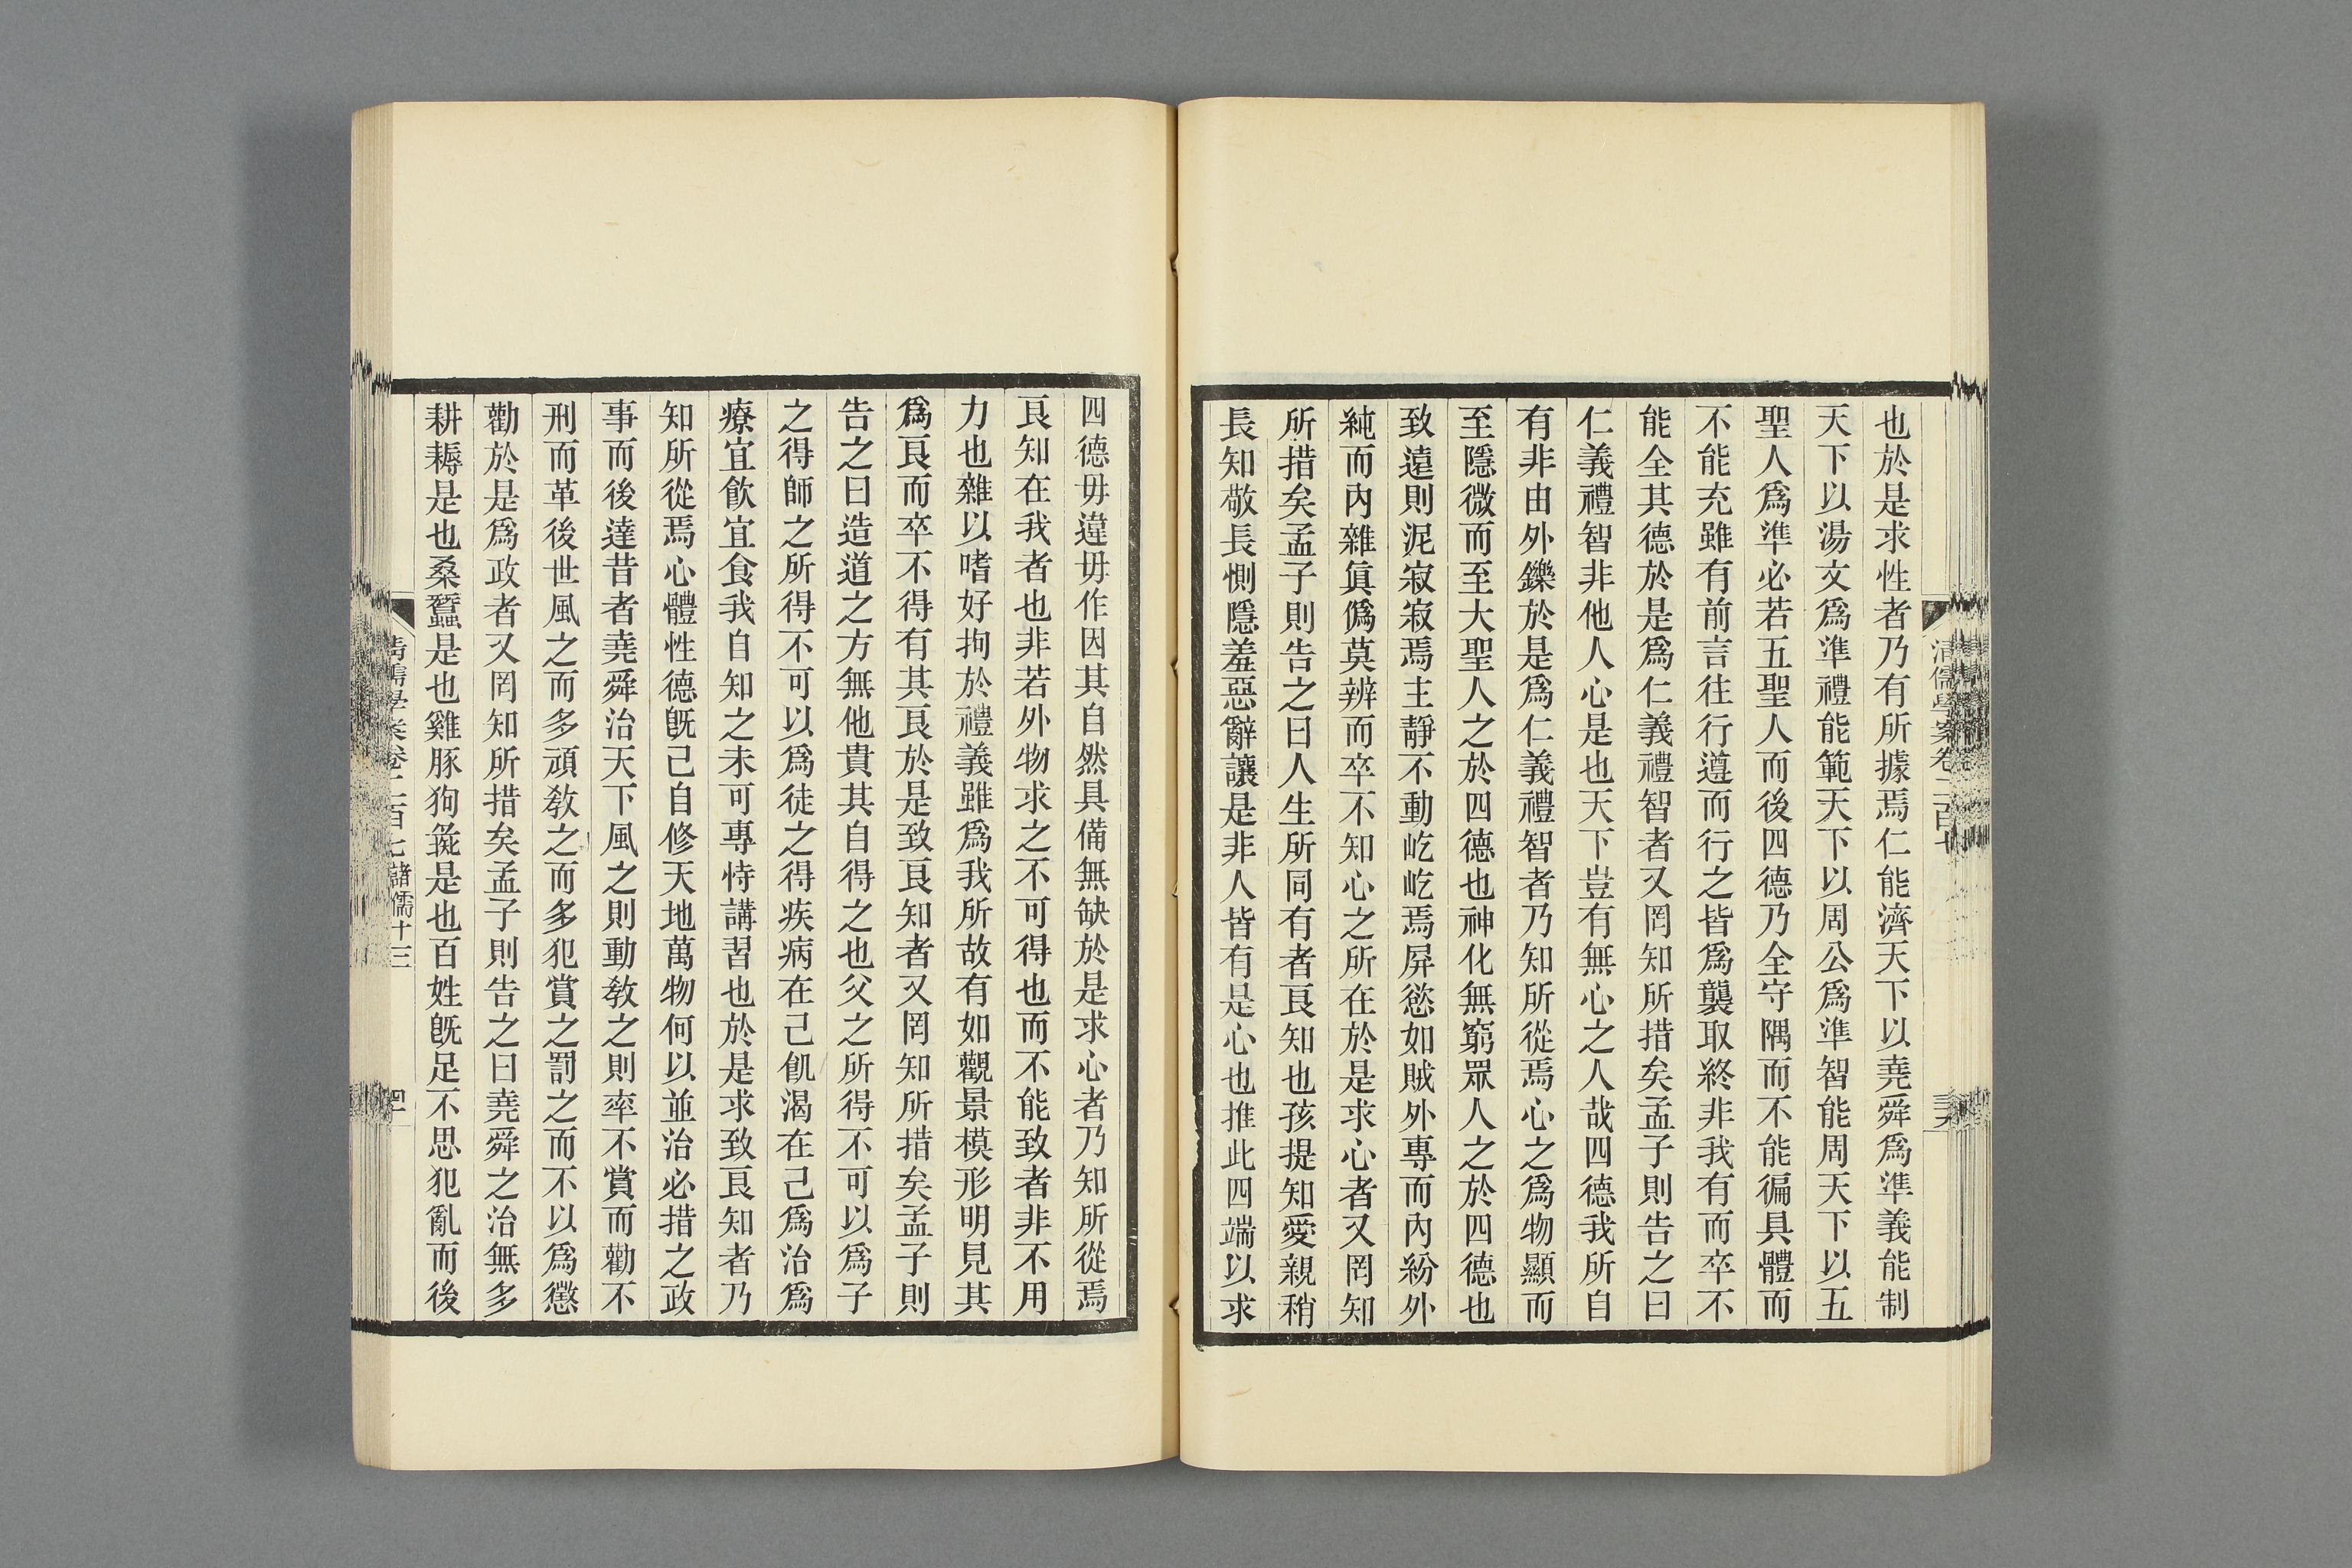 也於是求性者乃有所據焉仁能濟天下以堯舜爲準義能制
天下以湯文爲準禮能範天下以周公爲準智能周天下以五
聖人爲準必若五聖人而後四德乃全守隅而不能徧具體而
不能充雖有前言往行遵而行之皆爲襲取終非我有而卒不
能全其德於是爲仁義禮智者又罔知所措矣孟子則告之曰
仁義禮智非他人心是也天下豈有無心之人哉四德我所自
有非由外鑠於是爲仁義禮智者乃知所從焉心之爲物顯而
至隱微而至大聖人之於四德也神化無窮眾人之於四德也
致遠則泥寂寂焉主靜不動屹屹焉屏慾如賊外專而內紛外
純而內雜眞僞莫辨而卒不知心之所在於是求心者又罔知
所措矣孟子則告之曰人生所同有者良知也孩提知愛親稍
長知敬長惻隱羞惡辭讓是非人皆有是心也推此四端以求
清儒學案卷二百七
四德毋違毋作因其自然具備無缺於是求心者乃知所從焉
良知在我者也非若外物求之不可得也而不能致者非不用
力也雜以嗜好拘於禮義雖爲我所故有如觀景模形明見其
爲良而卒不得有其良於是致良知者又罔知所措矣孟子則
告之曰造道之方無他貴其自得之也父之所得不可以爲子
之得師之所得不可以爲徒之得疾病在己飢渴在己爲治爲
療宜飲宜食我自知之未可專恃講習也於是求致良知者乃
知所從焉心體性德既己自修天地萬物何以並治必措之政
事而後達昔者堯舜治天下風之則動教之則率不賞而勸不
刑而革後世風之而多頑教之而多犯賞之罰之而不以爲懲
勸於是爲政者又罔知所措矣孟子則告之曰堯舜之治無多
耕耨是也桑蠶是也雞豚狗彘是也百姓既足不思犯亂而後
清儒學案卷二百七 諸儒十三